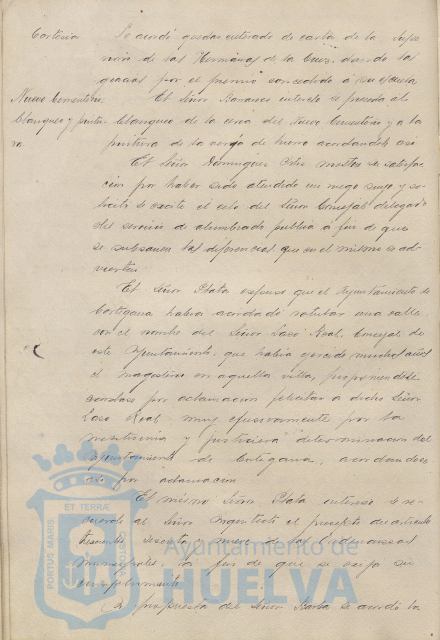 Cortesía. Se acordó quedar enterado de carta de la Supe-
riora de las Hermanas de la Cruz, dando las
gracias por el premio concedido á su escuela
Nuevo Cementerio. El Señor Barance interesó se proceda al
blanqueo y pintu- blanqueo de la cerca del Nuevo Cementerio y a la
ra. pintura de la verja de hierro acordándolo así
El Señor Dominguez mostro su satisfac-
ción por haber sido atendido un ruego suyo y so-
licitó se excite el celo del Señor Concejal delegado
del servicio de alumbrado publico á fin de que
se subsanen las diferencias que en el mismo se ad-
vierten
El Señor Plata expuso que el Ayuntamiento de
Cortegana habia acordado rotular una calle
con el nombre del Señor Laso Real, Concejal de
este Ayuntamiento, que habia ejercido muchos años
el magisterio en aquella villa, proponiendo se
acordase por aclamacion felicitar a dicho Señor
Laso Real muy efusivamente por la
meritisima y justisima determinacion del
Ayuntamiento de Cortegana, acordandose
así por aclamacion
El mismo Señor Plata interesó se re-
cuerde al Señor el precepto del articulo
trescientos sesenta y nueve de las Ordenanzas
Municipales, a fin de que se exija su
cumplimiento
A propuesta del Señor Barba se acordó la
PORTUS MARIS ET TERRÆ CUSTODIA
Ayuntamiento de
HUELVA